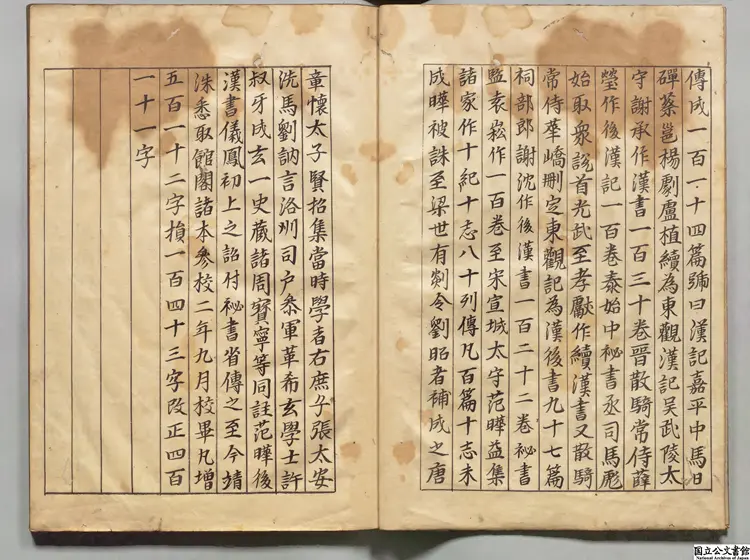 傳成一百一十四篇號曰漢記嘉平中馬日
磾蔡邕楊劇盧植續為東觀漢記吴武陵太
守謝承作漢書一百三十卷晉散騎常侍薛
瑩作後漢記一百卷泰始中秘書丞司馬彪
始取衆說首光武至孝獻作續漢書又散騎
常侍華嶠刪定東觀記為漢後書九十七篇
祠部郎謝沈作後漢書一百二十二卷祕書
監袁崧作一百卷至宋宣城太守范曄益集
諸家作十紀十志八十列傳凡百篇十志未
成曄被誅至梁世有剡令劉昭者補成之唐
章懷太子賢招集當時學者右庶子張太安
洗馬劉訥言洛州司户叅軍革希玄學士許
叔牙成玄一史藏諸周寳寧等同註范曄後
漢書儀鳳初上之詔付祕書省傳之至今靖
洙悉取館閣諸本參校二年九月校畢凡增
五百一十二字損一百四十三字改正四百
一十一字
国立公文書館
National Archives of Japan